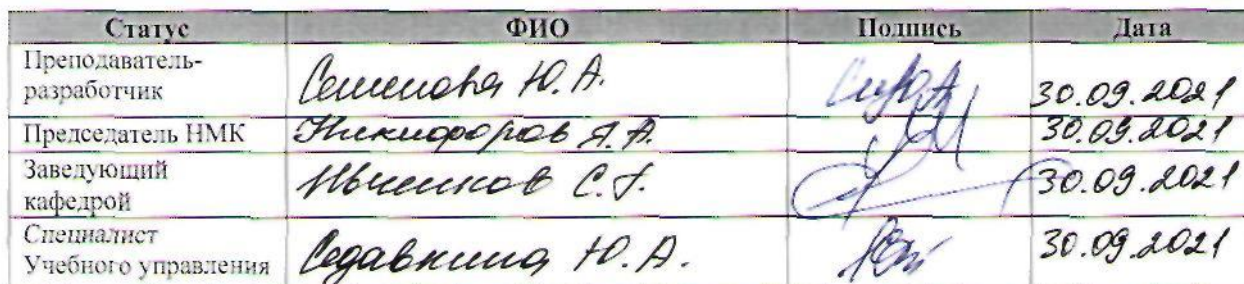 Статус ФИО Подпись Дата
Преподаватель-
разработчик Семенова Ю.А. 30.09.2021
Председатель НМК Никифоров А.А. 30.09.2021
Заведующий
кафедрой С.Г. 30.09.2021
Специалист
Учебного управления Седавкина Ю.А. 30.09.2021